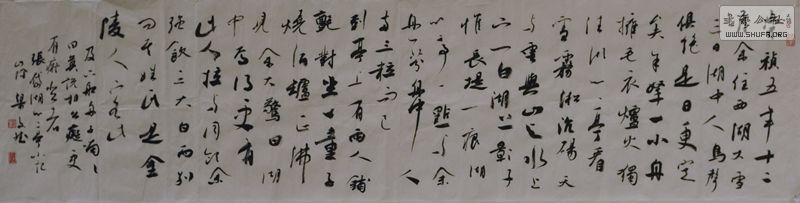 書法公社
WWW.SHUFA.ORG
崇禎五年十二
月余住西湖大雪
三日湖中人鳥聲
俱絕是日更定
矣余拏一小舟
擁毳衣爐火獨
往湖心亭看
雪霧淞沆碭天
與雲與山與水上
下一白湖上影子
惟長堤一痕湖
心亭一點與余
舟一芥舟中人
兩三粒而已
到亭上有兩人鋪
氈對坐一童子
燒酒爐正沸
見余大驚曰湖
中焉得更有
此人拉與同飲余
強飲三大白而別
問其姓氏是金
陵人客此
及下船舟子喃喃
曰莫說相公癡更
有癡似相公者
張岱湖心亭小記